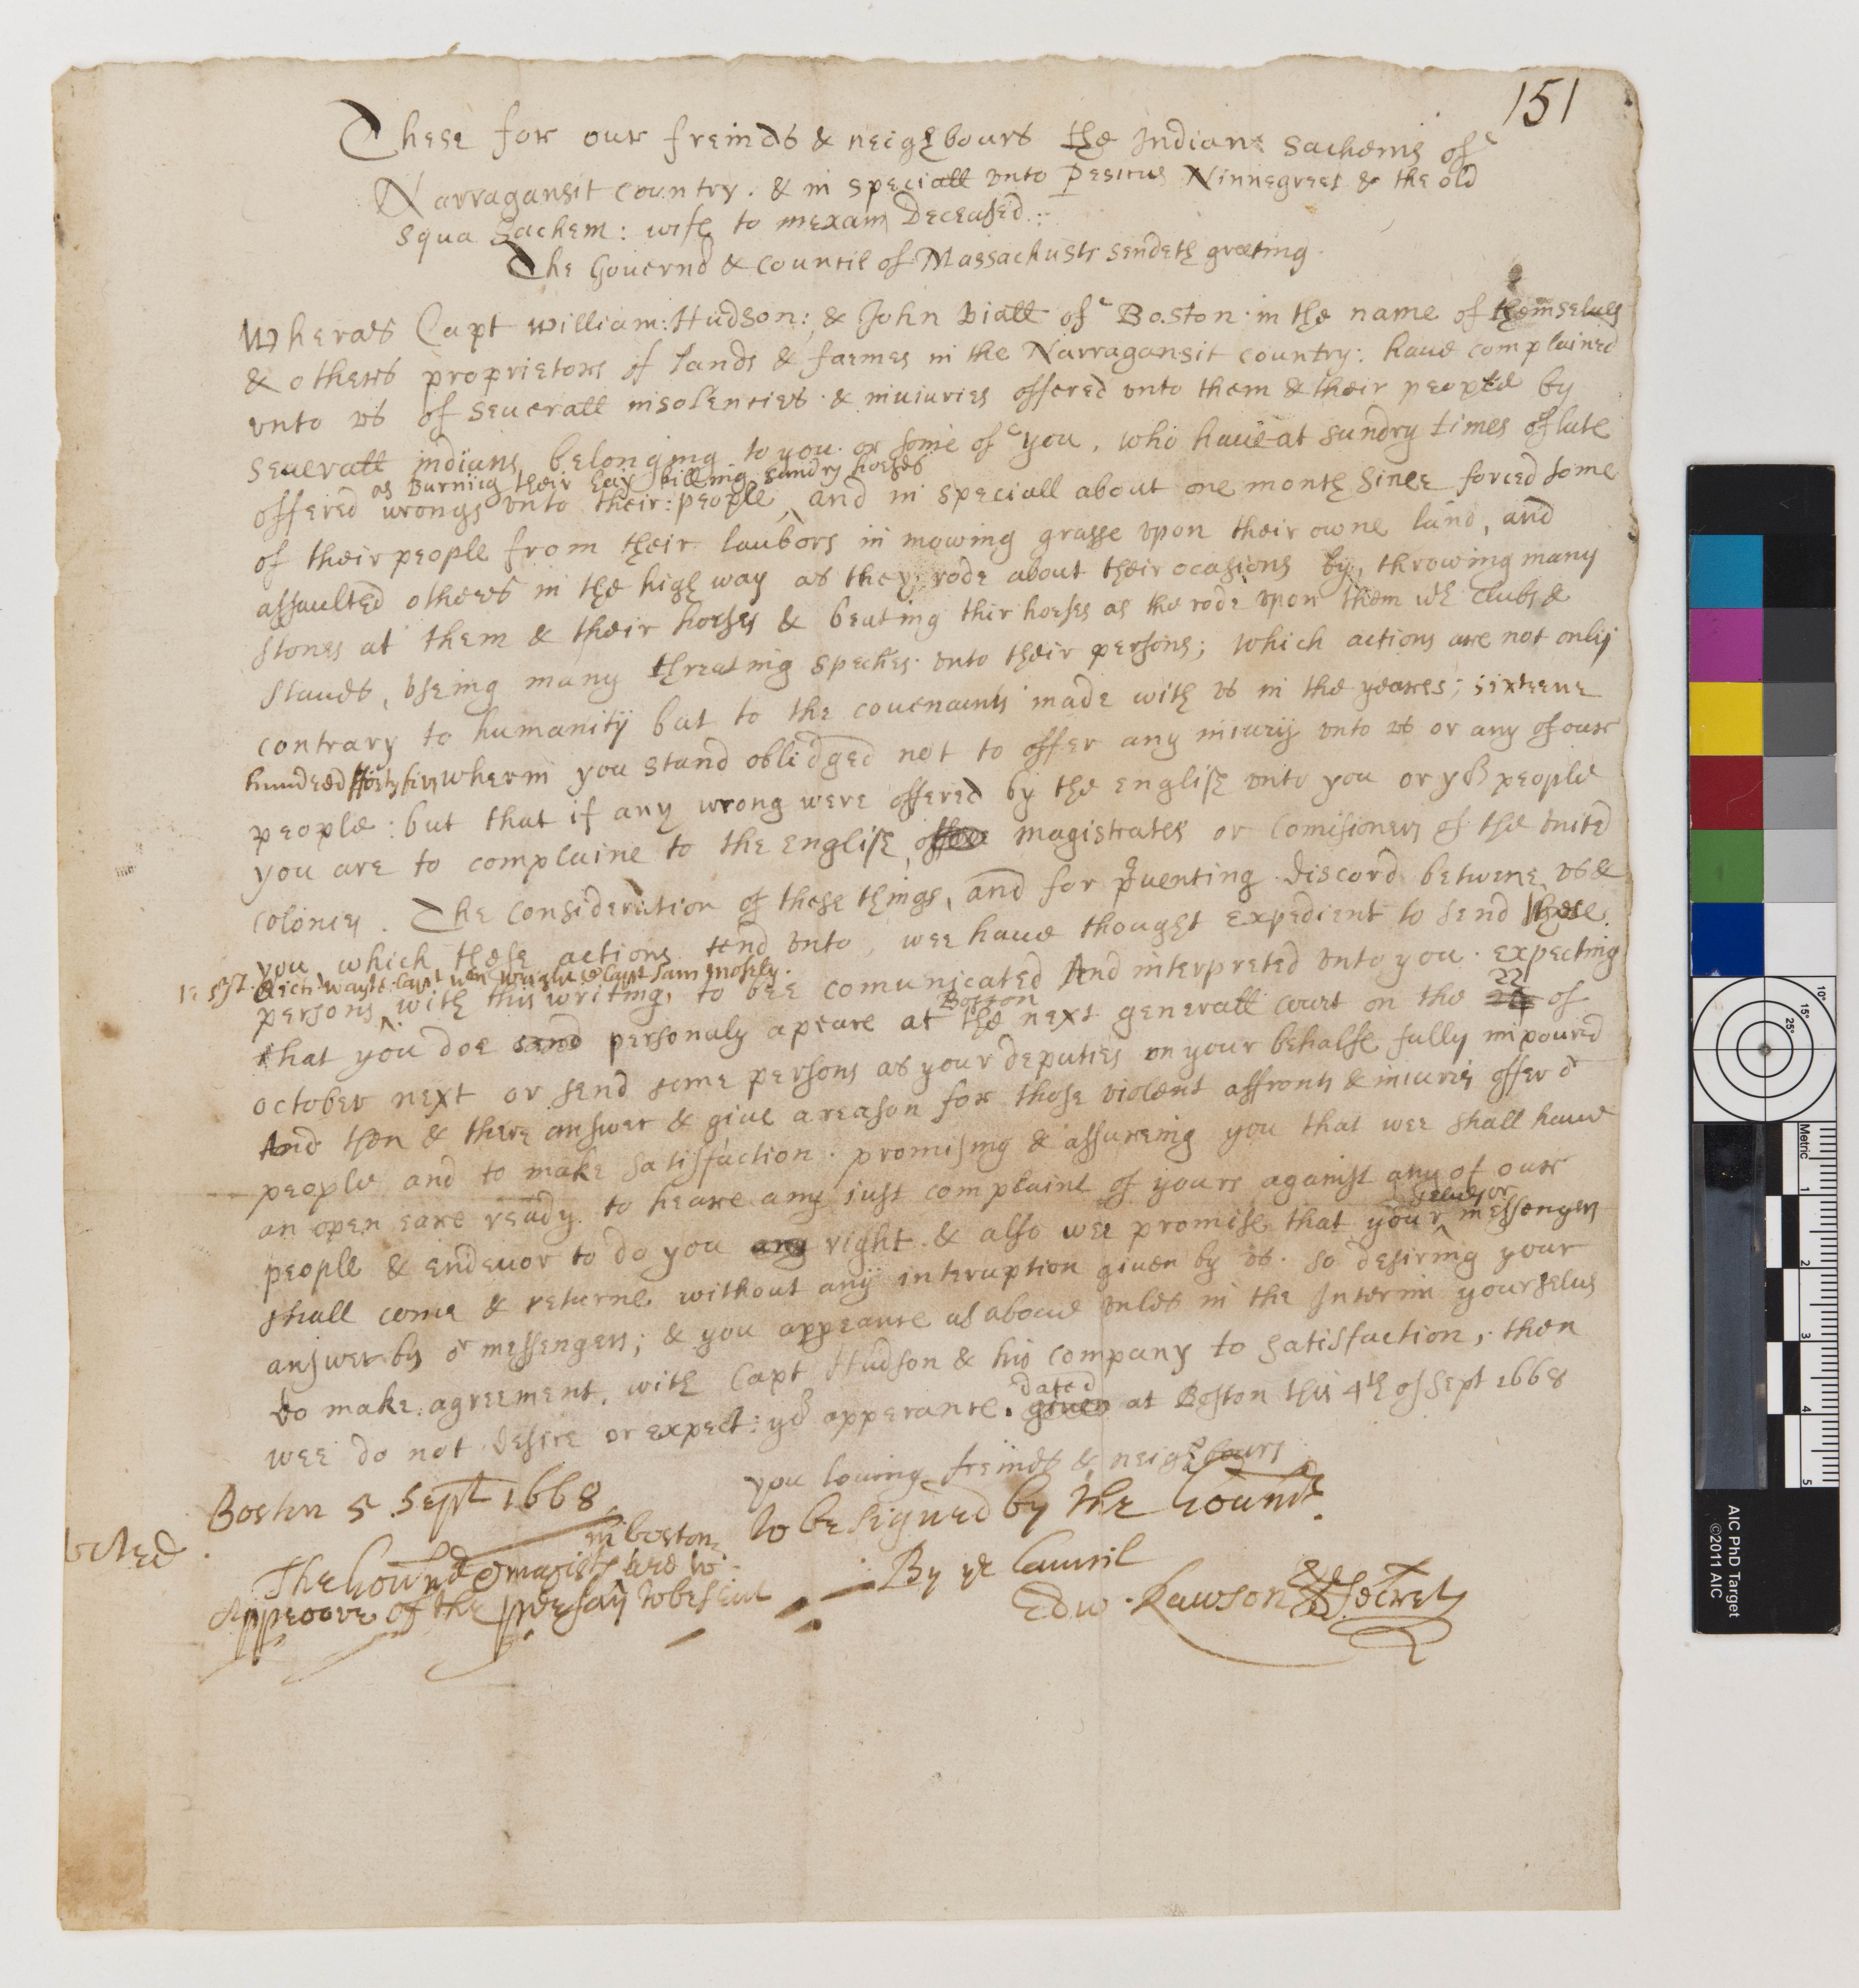 151
These for our freinds & neighbours the Indian Sachems of
Narragansit country. & in speciall vnto Pesicus Ninnegreet & the old
Squa Sachem: wife to mexam Deceased:
The Gouernor & Council of Massachusts sendeth greeting.
Wheras Capt William: Hudson: & John viall of Boston in the name of themselues
& others proprietors of lands & farmes in the Narragansit country: haue complained
vnto vs of seuerall insolencies & iniuries offered vnto them & their people by
seuerall indians belonging to you or some of you, who haue at sundry times of late
as Burning their hay killing sundry horses
offered wrongs vnto their: people, and in speciall about one month since forced some
of their people from their laubors in mowing grasse vpon their owne land, and
assaulted others in the high way as they rode about their ocasions by, throwing many
stones at them & their horses & beating thir horses as the rode vpon them wth Clubs &
staues, vseing many threatnig speches vnto their persons; which actions are not only
contrary to humanity but to the couenants made with vs in the yeares; sixteene
hundred fforty five wherin you stand oblidged not to offer any iniury vnto vs or any of our
people: but that if any wrong were offered by the english vnto you or yor people
you are to complaine to the english magistrates or Comisioners of the vnited
colonies. The consideration of these things, and for preuenting discord betwene vs &
you which these actions tend vnto, wee haue thought expedient to send these
Rich: wayte Capt wm wright & Capt Sam Mosely.
persons with this writing, to bee comunicated And interpreted vnto you. expecting
Boston 22
that you doe send personaly apeare at the next generall court on the of
october next or send some persons as your deputies on your behalfe fully impoured
And then & there answer & giue a reason for those violent affronts & iniuries offer d
people and to make satisfaction. promising & assureing you that wee shall haue
an open eare ready to heare any iust complaint of yours against any of our
selues or
people & endeuor to do you any right & also wee promise that your messengers
shall come & returne without any interuption giuen by vs. so desiring your
answer by or messengers; & you appeance as aboue vnles in the Interim yourselus
do make: agreement, with Capt Hudson & his company to satisfaction, then
dated
wee do not desire or expect: yor apperance. giuen at Boston this 4th of Sept 1668
you louing freinds & neighbours
Boston 5 Sept 1668
to be signed by the Gournr.
in boston
The Gournor & magists
By ye Council
Approove of the to be sent
Edw. Rawson Secrety